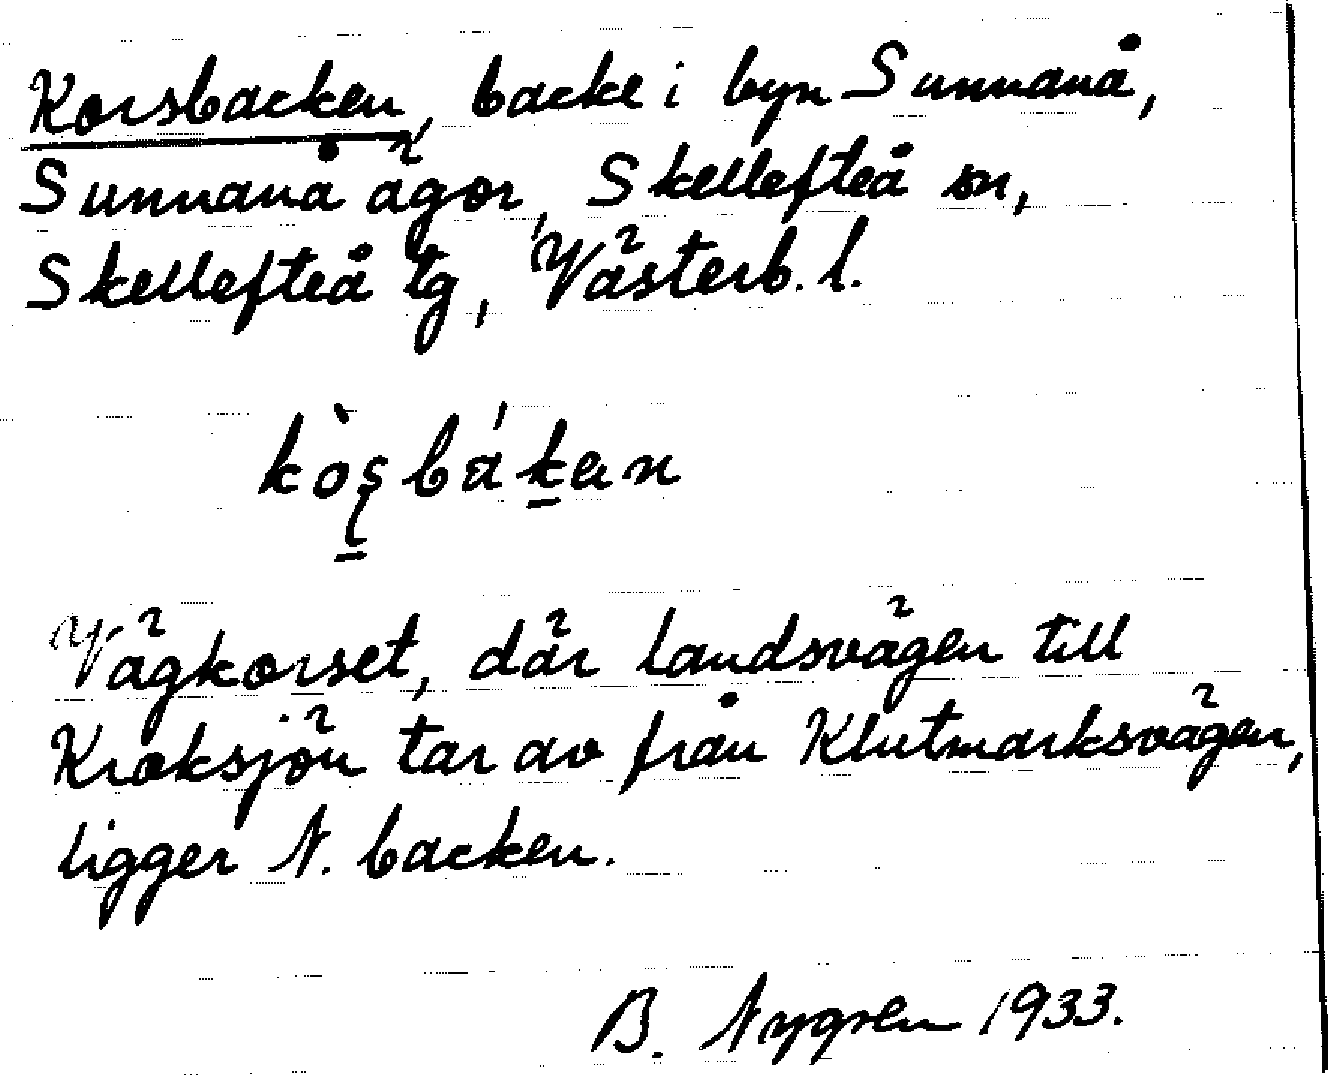 Korsbacken, backe i byn Sunnanå,
Sunnanå ägor, Skellefteå sn,
Skellefteå tg, Västerb. l.
kòʂbákan
Vägkorset, där landsvägen till
Kroksjön tar av från Klutmarksvägen,
ligger N. backen.
B. Nygren 1933.